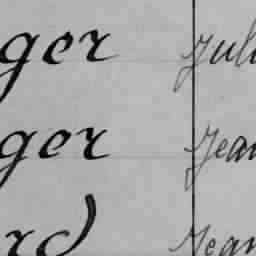 ger Juli
ger Jean
rd Jean